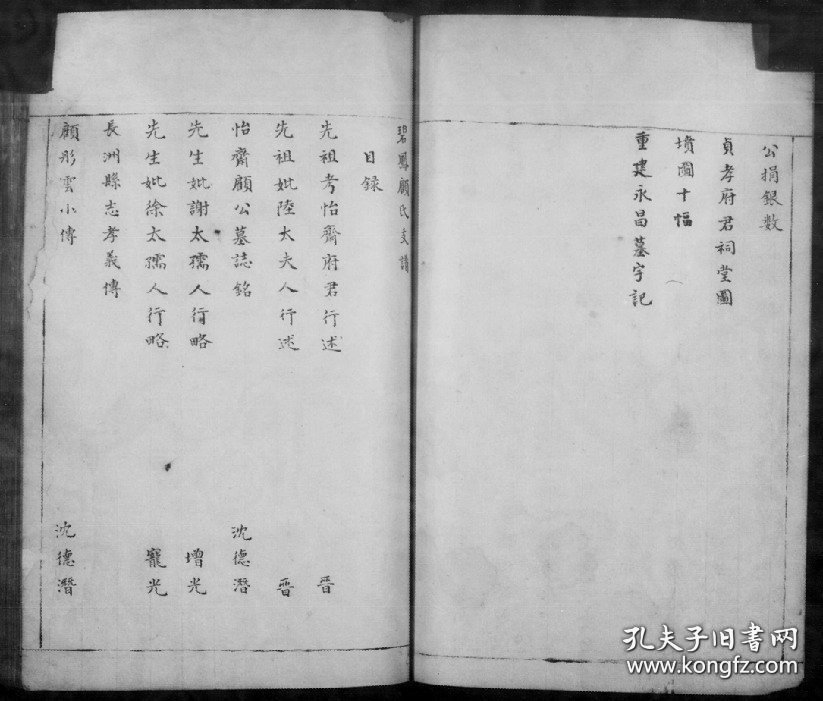 公捐銀数
貞孝府君祠堂圖
墳圖十幅
重建永昌墓宇記
碧鳳顧氏支譜
目録
先祖考怡齋府君行述 晋
先祖妣陸太夫人行述 晋
怡齋顧公墓誌銘 沈德潛
先生妣謝太孺人行略 增光
先生妣徐太孺人行略 寵光
長洲縣志孝義傳
顧彤雲小傳 沈德潛
孔夫子旧书网
www.kongfz.com